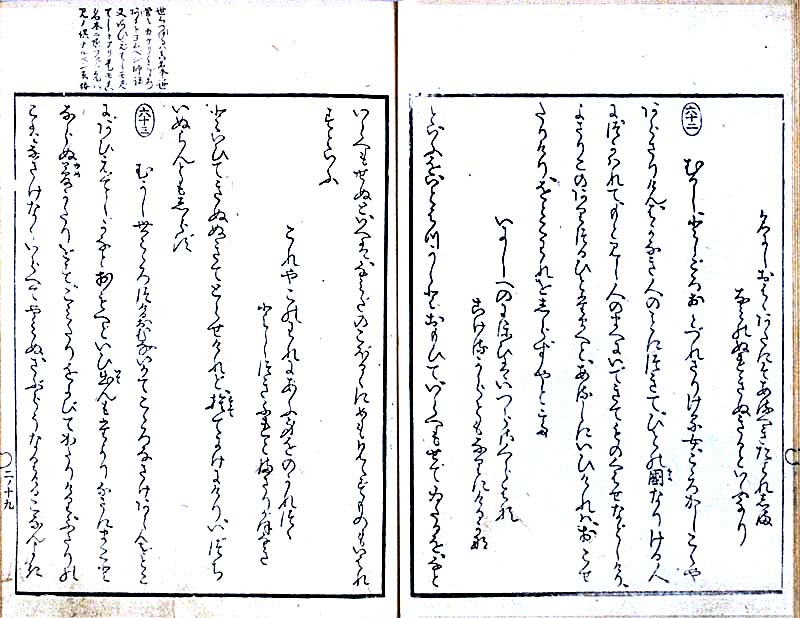 名にしおはゞあだにぞあるべきたはれじま
なみのぬれぎぬきるといふなり
六十二
むかしとしごろおとづれざりける女こゝろかしこくや
あらざりけんはかなき人のことにつきてひとの國なりける人
につかはれてもと見し人のまへにいできてものくはせなどしけり
よさりこのありつるひとたまへとあるじにいひければおこせ
たりけりをとこわれをばしらずやとて
いにしへのにほひはいづらさくらばな
こけるからともなりにけるかな
といふをいとはづかしとおもひていらへもせでゐたるをなど
いらへもせぬといへばなみだのこぼるゝにめも見えずものもいはれ
ずといふ
これやこのわれにあふみをのがれつゝ
とし月ふれどまさりがほなき
といひてきぬぬぎてとらせけれど捨てにげにけりいづち
いぬらんともしらず
六十三
むかし世ごゝろつける女いかでこゝろなさけあらんをとこ
にあひえてしがなとおもへどいひ出んもたよりなさにまことな
らぬ夢がたりをす子三たりをよびてかたりけりふたりの
こはなさけなくいらへてやみぬさぶらうなりけるこなんよき
二ノ十九